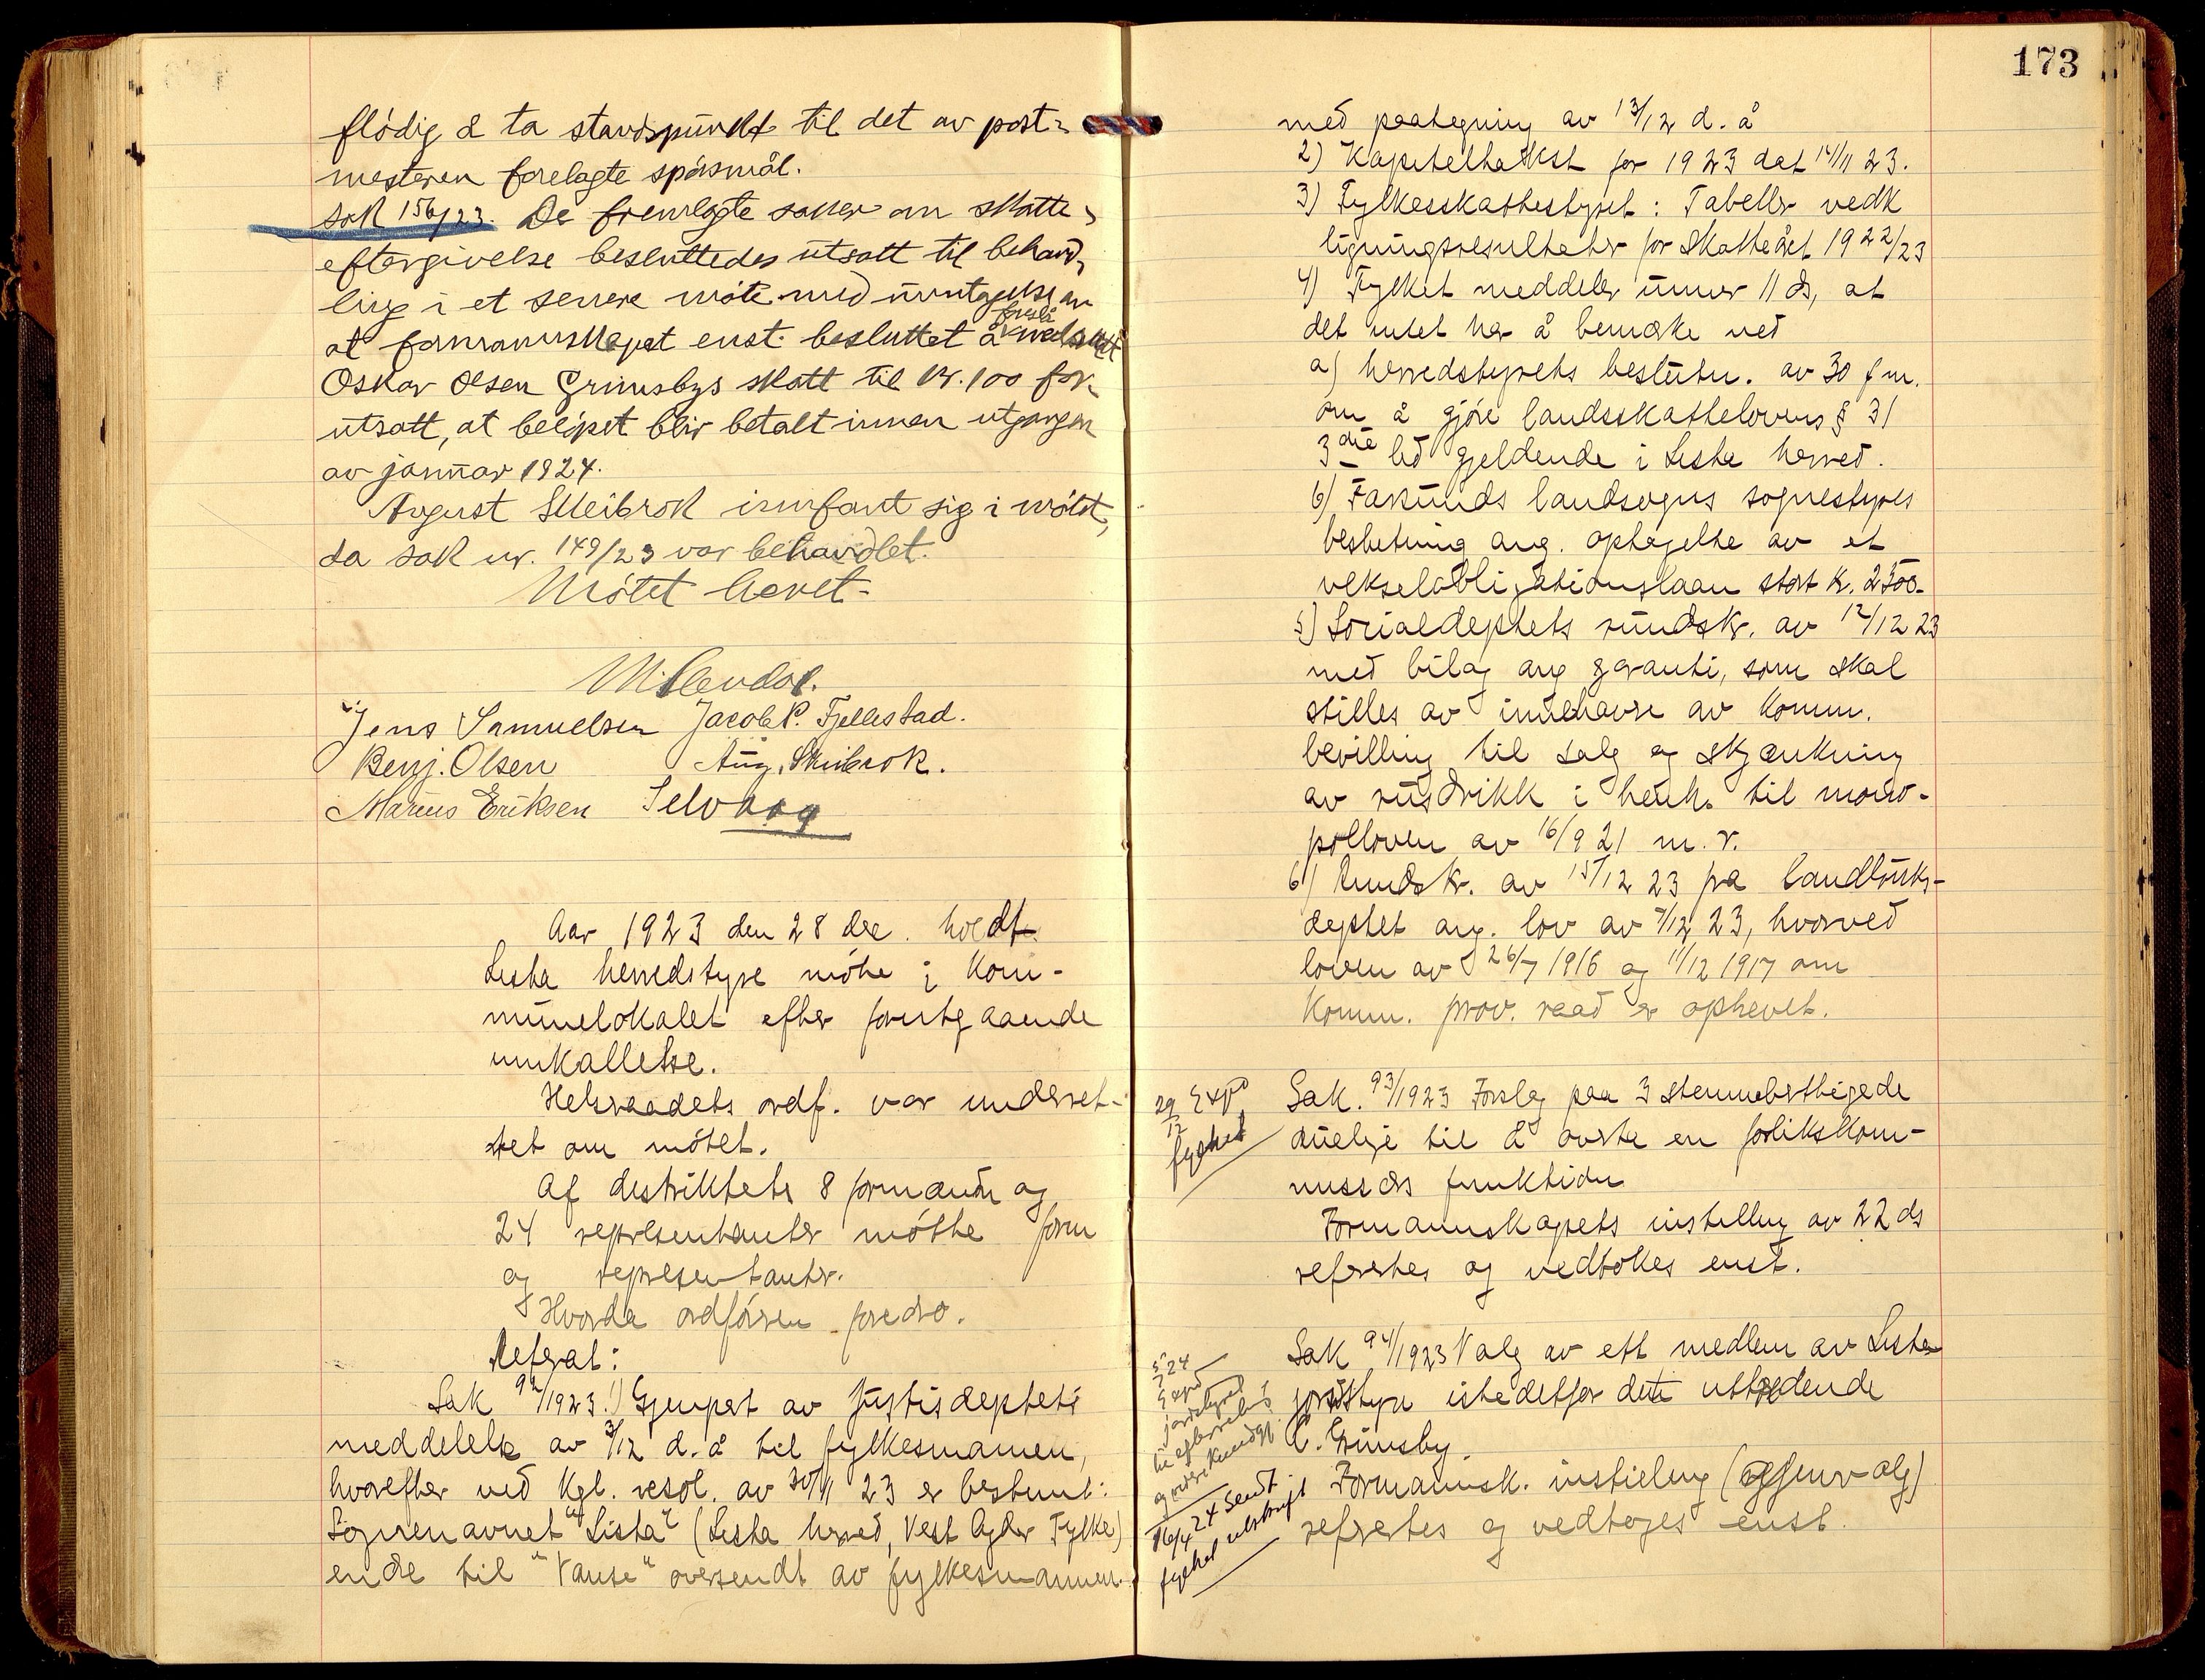 flödig å ta standspunkt til det av post-
mesteren forelagte spörsmål.
Sak 156/23. De fremlagte saker om skatte-
eftergivelse besluttedes utsatt til behand-
ling i et senere möte med undtagelse av
at formannskapet enst. besluttet å foreslå nedsatt
Oskar Olsen Grimsbys skatt til kr. 100 for-
utsatt, at belöpet blir betalt innen utgangen
av januar 1924.
August Skeibrok innfant sig i mötet,
da sak nr. 149/23 var behandlet.
Mötet hevet.
Jens Samuelsen Jacob P. Fjellestad.
Benj. Olsen Aug. Skeibrok.
Marius Eriksen Selvaag
Aar 1923 den 28 des. holdt
Lista herredstyre möte i kom-
munelokalet efter forutgaaende
innkallelse.
Helseraadets ordf. var underret-
tet om mötet.
Af distriktets 8 formænn og
24 representanter mötte form
og representanter.
Hvorda ordföreren foredro.
Referat:
Sak 92/1923. 1) Gjenpart av Justisdeptets
meddelelse av 3/12 d. å til fylkesmannen,
hvorefter ved Kgl. resol. av 30/11 23 er bestemt:
Sognenavnet "Lista" (Lista herred, Vest Agder Fylke)
endr til "Vanse" oversendt av fylkesmannen
173
med paategning av 13/12 d. å
2) Kapiteltakst for 1923 dat 14/11 23.
3) Fylkesskattestyret: Tabeller vedk
ligningsresultater for skatteåret 1922/23
4) Fylket meddeler unner 11 ds, at
det intet har å bemerke ved
a) herredstyrets beslutn. av 30 f m.
om å gjöre landsskattelovens § 31
3die led gjeldende i Lista herred.
b) Farsunds landsogns sognestyres
beslutning ang. optagelse av et
vekselobligationslaan stort kr. 2500.-
5) Socialdeptets rundskr. av 12/12 23
med bilag ang garanti, som skal
stilles av innehavere av komm.
bevilling til salg og skjænkning
av rusdrikk i henh. til mono-
polloven av 16/9 21 m. v.
6) Rundskr. av 15/12 23 fra landbruks-
deptet ang. lov av 7/12 23, hvorved
loven av 26/7 1916 og 11/12 1917 om
komm. prov. raad er ophevet.
29/12 Exp.
fylket
Sak. 93/1923 Forslag paa 3 stemmeberettigede
duelige til å avste en forlikskom-
missærs funktion
Formannskapets instilling av 22 ds
refertes og vedtokes enst.
24
Exped
jordstyret
Sak 94/1923 Valg av ett medlem av Lista
jordstyre istedetfor dette uttredende
C. Grimsby.
Formannsk. instilling (gjenvalg)
refertes og vedtoges enst.
16/4 24 sendt
fylket utskrift